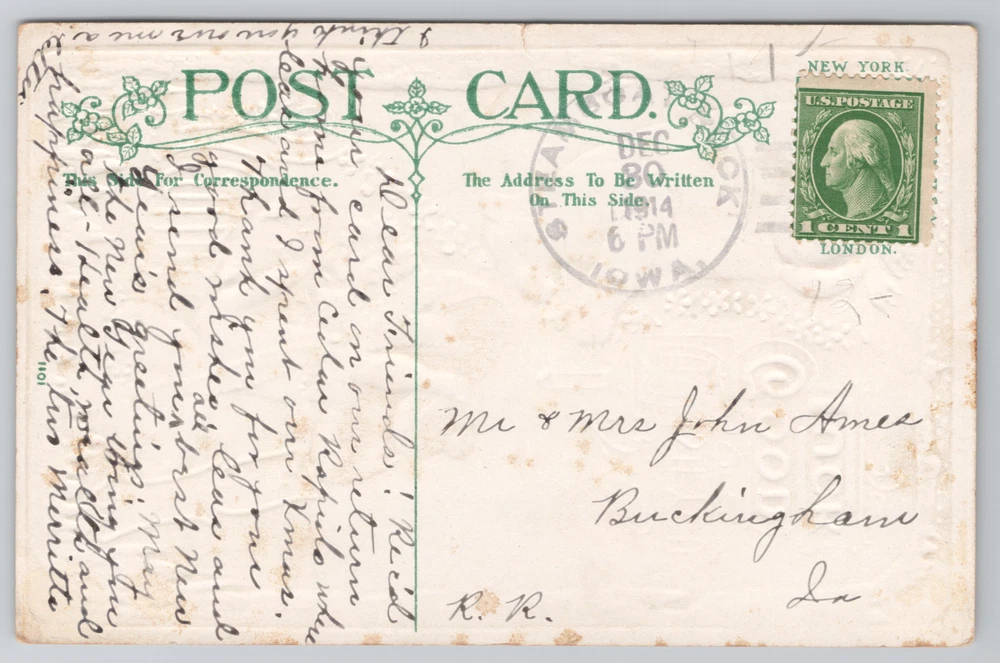 POST CARD.
This Side For Correspondence.
The Address To Be Written
On This Side.
NEW YORK.
U.S. POSTAGE
1 CENT 1
LONDON.
STEAMBOAT ROCK
DEC
30
1914
6 PM
IOWA.
12-
Dear Friends! Rec'd
your card on our return
home from Cedar Rapids where
Leas and I spent our Xmas.
Thank you for your
good wishes all Leas and
I send you best New
Year's greetings. May
the New Year bring you
all - Health, wealth and
happiness. The two Merritts
I think you owe me a
letter.
Mr & Mrs John Ames
Buckingham
Ia
R. R.
1101